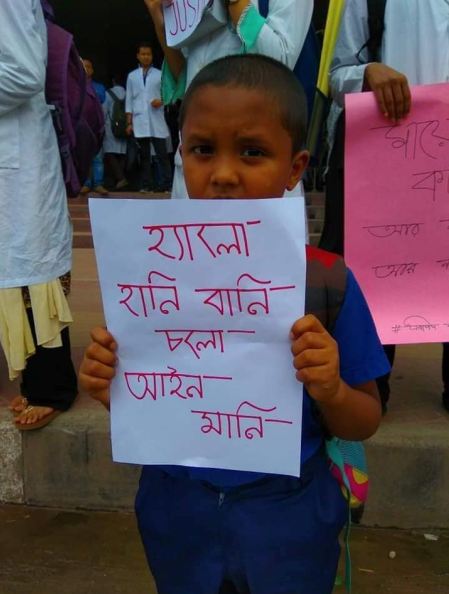 হ্যালো
হানি বানি
চলো
আইন
মানি
আর
আর